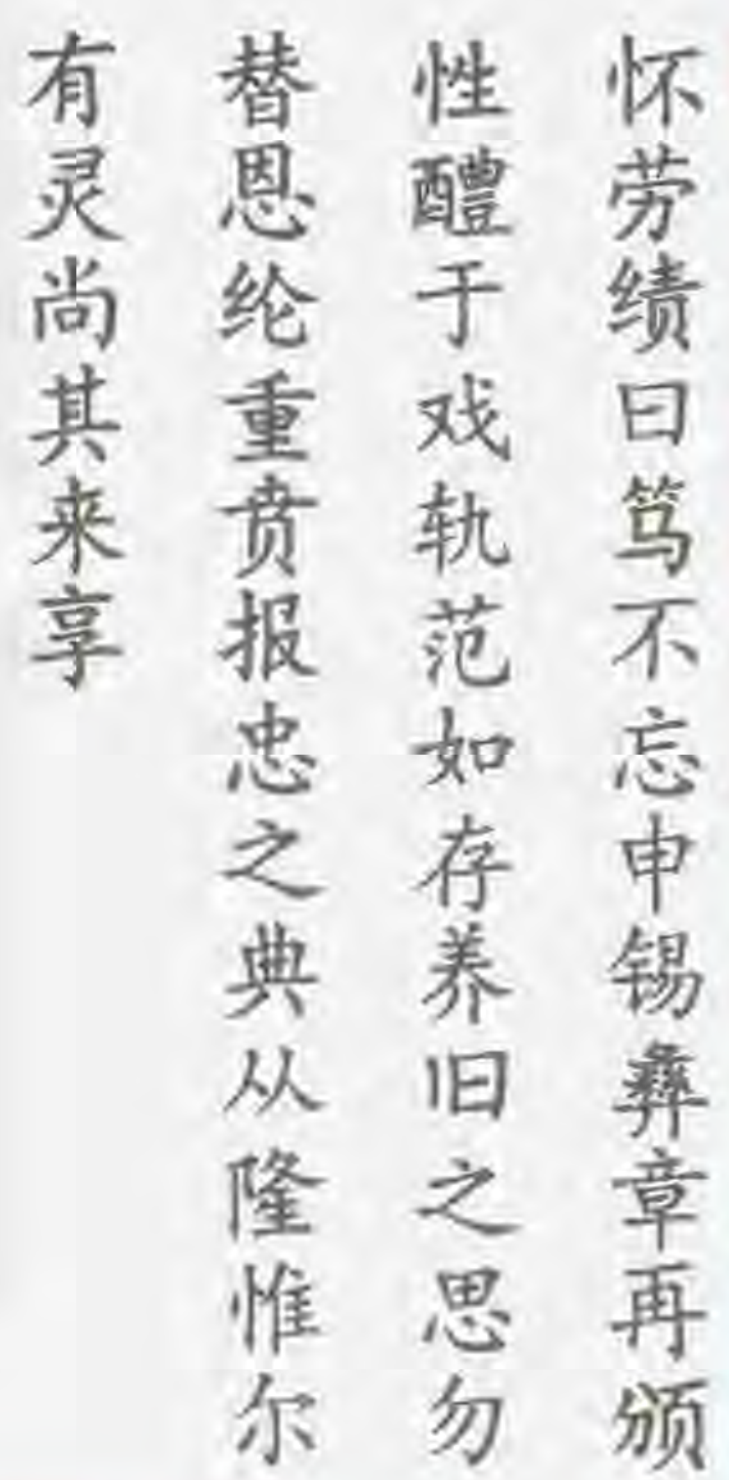 怀劳绩曰笃不忘申锡彝章再颁
性醴于戏轨范如存养旧之思勿
替恩纶重贲报忠之典从隆惟尔
有灵尚其来享